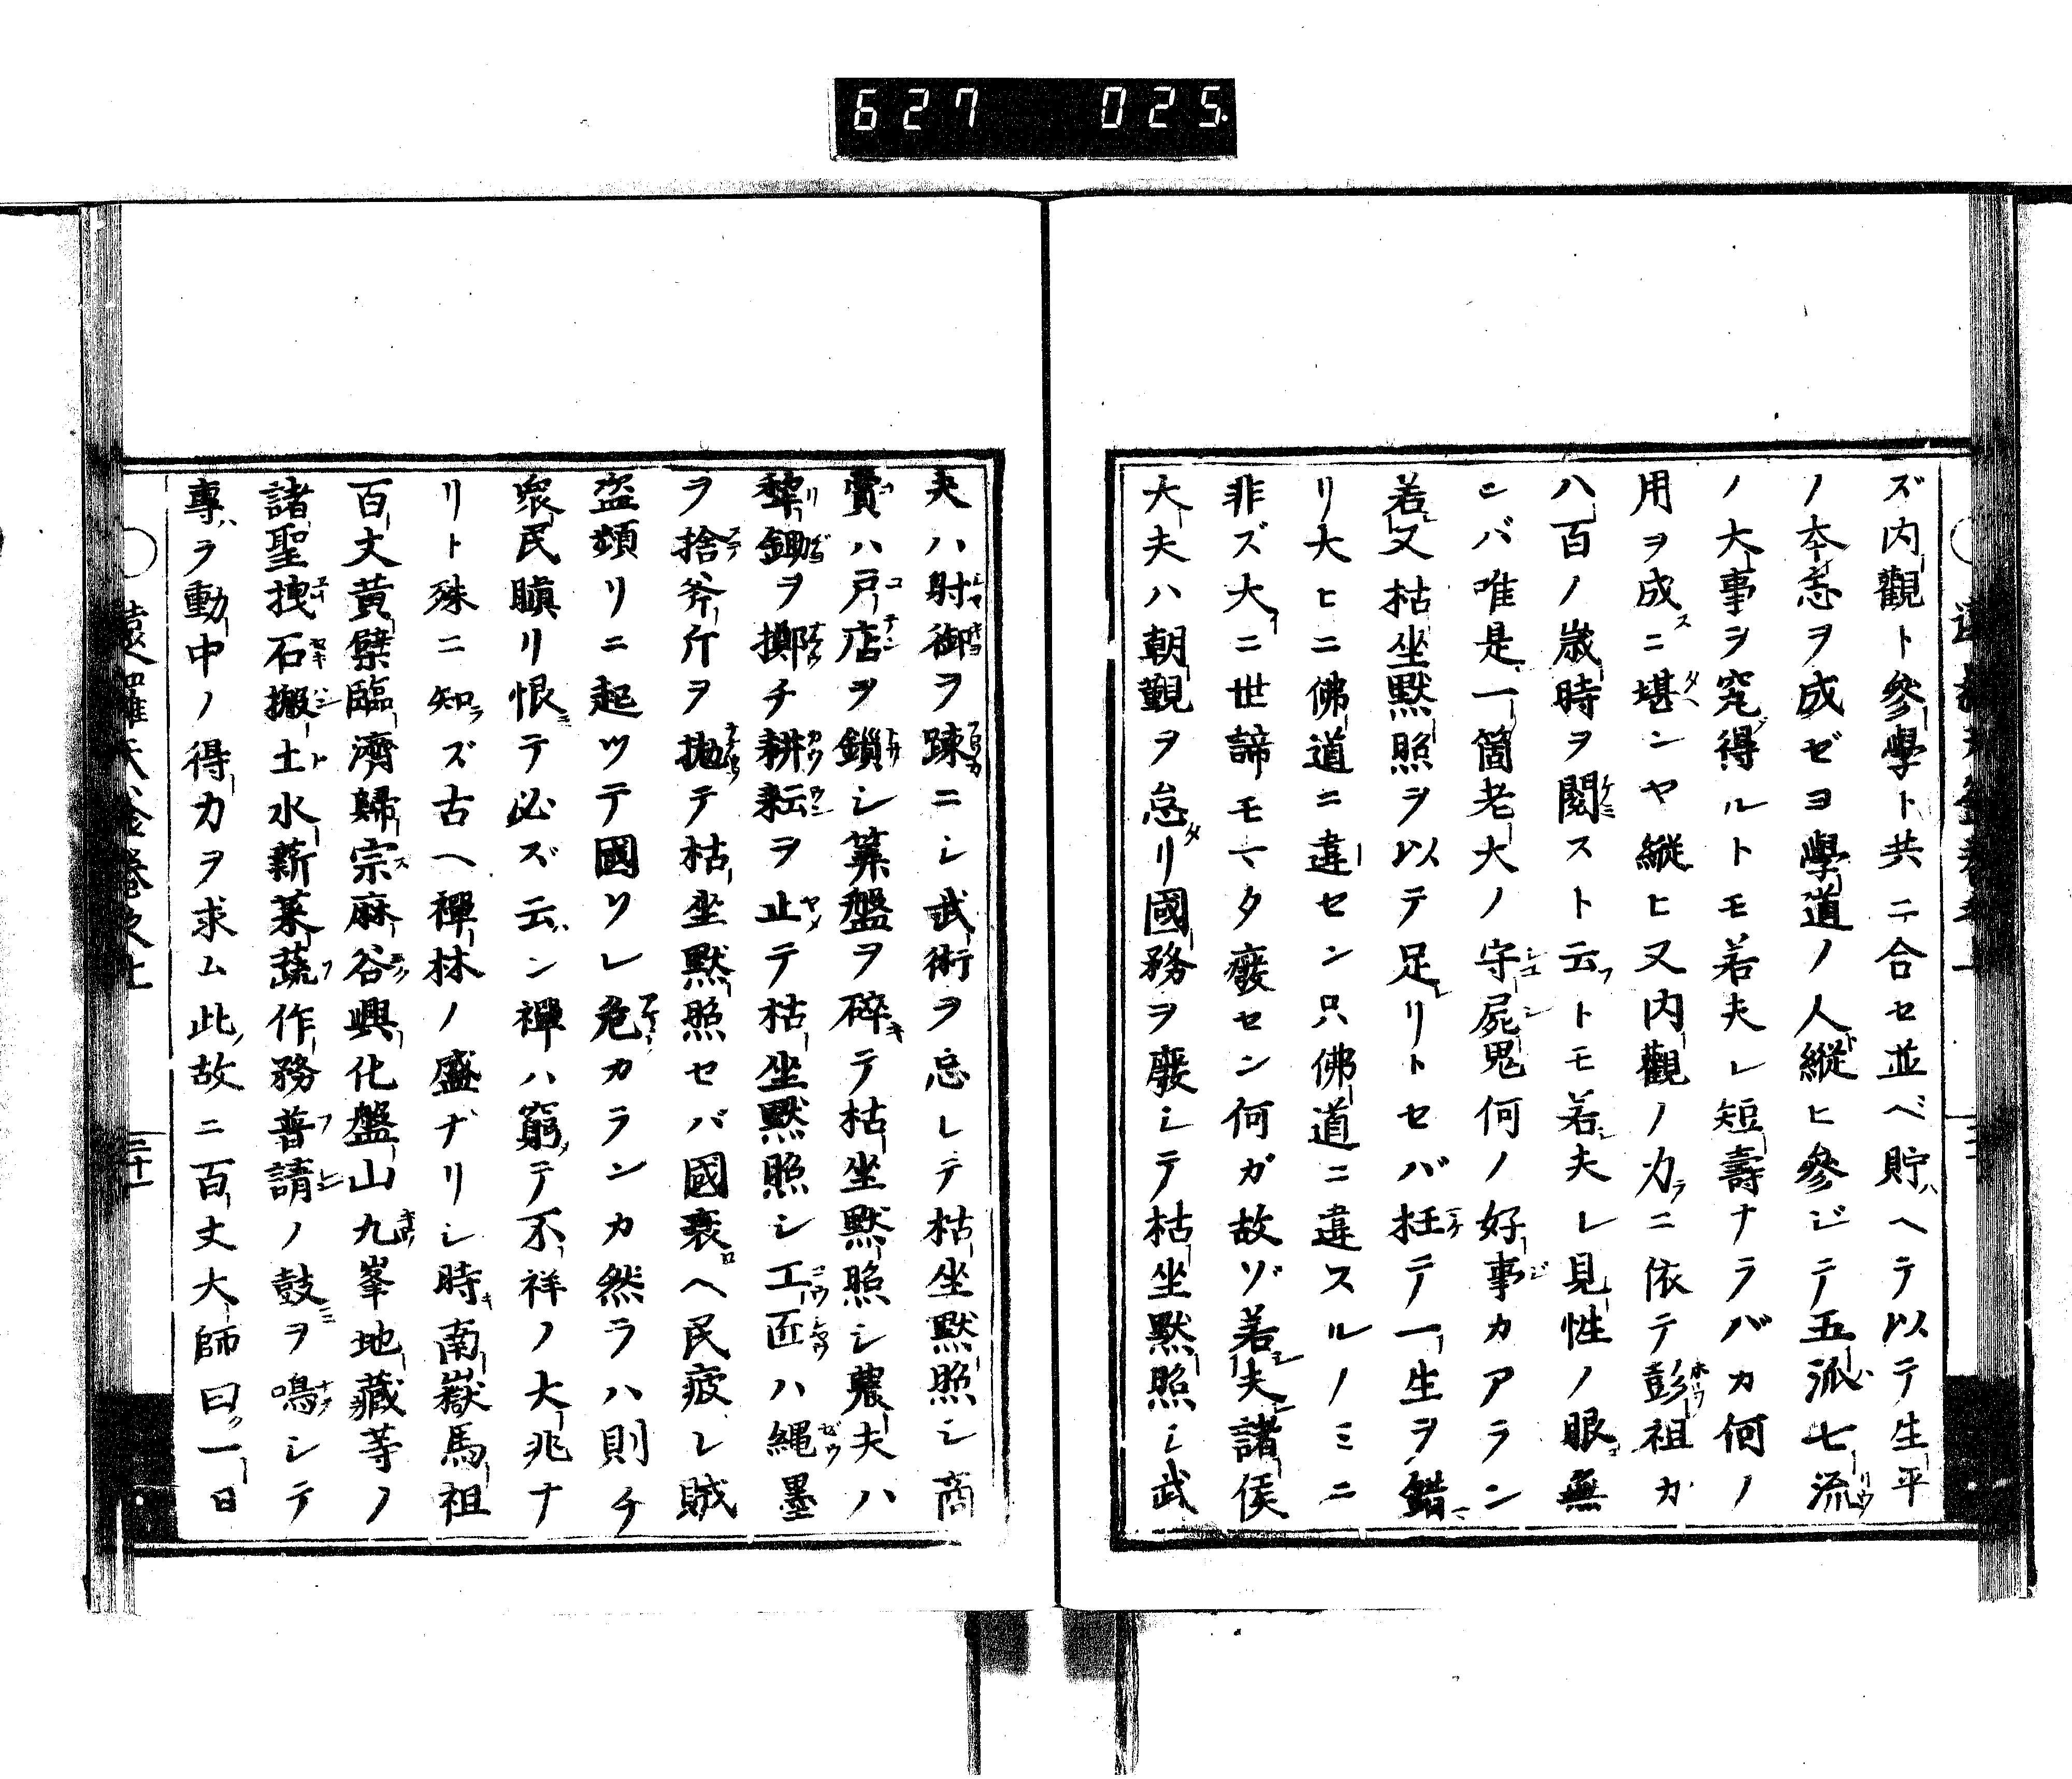 627 025
ズ内觀ト參學ト共ニ合セ並ベ貯ヘテ以テ生平
ノ本志ヲ成ゼヨ學道ノ人縱ヒ參ジテ五派七流
ノ大事ヲ究得ルトモ若夫レ短壽ナラバカ何ノ
用ヲ成ニ堪ンヤ縱ヒ又内觀ノ力ニ依テ彭祖カ
八百ノ歳時ヲ閲スト云トモ若夫レ見性ノ眼無
ンバ唯是一箇老大ノ守屍鬼何ノ好事カアラン
若又枯坐默照ヲ以テ足リトセバ枉テ一生ヲ錯
リ大ヒニ佛道ニ違セン只佛道ニ違スルノミニ
非ズ大ニ世諦モマタ廢セン何ガ故ゾ若夫諸侯
大夫ハ朝覲ヲ怠リ國務ヲ廢シテ枯坐默照シ武
夫ハ射御ヲ踈ニシ武術ヲ忘レテ枯坐默照シ商
賣ハ戸店ヲ鎖シ筭盤ヲ碎テ枯坐默照シ農夫ハ
犂鋤ヲ擲チ耕耘ヲ止テ枯坐默照シ工匠ハ繩墨
ヲ捨斧斤ヲ抛テ枯坐默照セバ國衰ヘ民疲レ賊
盜頻リニ起ツテ國ソレ危カランカ然ラハ則チ
衆民瞋リ恨テ必ズ云ン禪ハ窮テ不祥ノ大兆ナ
リト殊ニ知ズ古ヘ禪林ノ盛ナリシ時南嶽馬祖
百丈黄檗臨濟歸宗麻谷興化盤山九峯地藏等ノ
諸聖拽石搬土水薪菜蔬作務普請ノ鼓ヲ鳴シテ
專ラ動中ノ得力ヲ求ム此故ニ百丈大師曰一日
遠羅天釜卷之上
二十